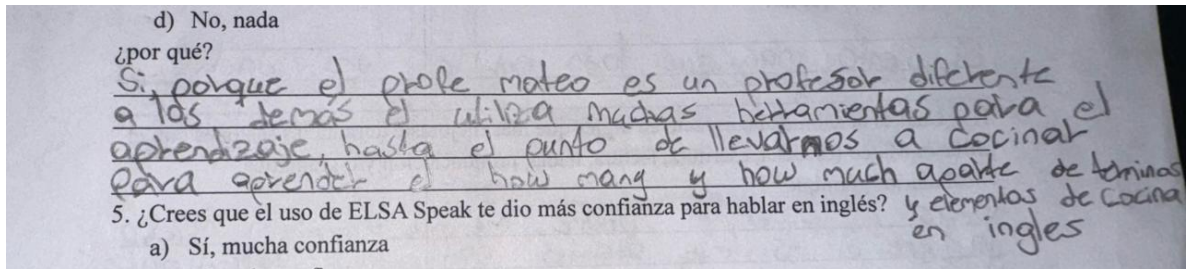 d) No, nada
¿por qué?
Si, porque el profe mateo es un profesor diferente
a las demas el utiliza muchas herramientas para el
aprendizaje, hasta el punto de llevarnos a cocinar
para aprender el how many y how much aparte de terminos
5. ¿Crees que el uso de ELSA Speak te dio más confianza para hablar en inglés? y elementos de cocina
a) Sí, mucha confianza en ingles